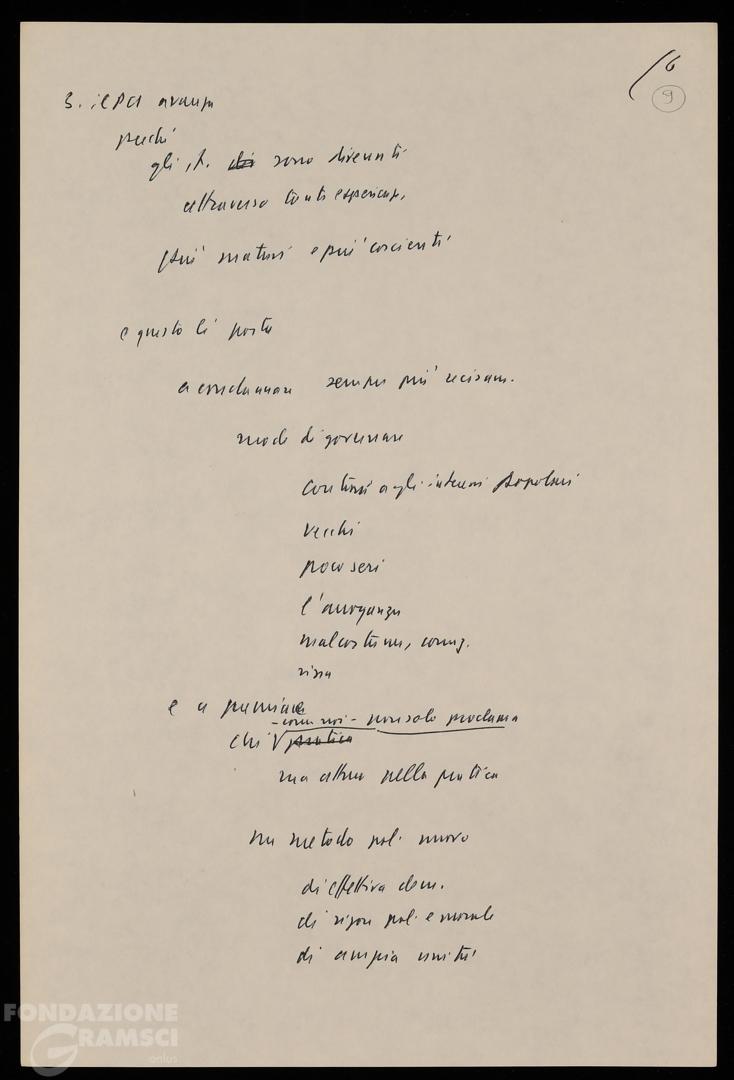 16
9
3. il PCI avanza
perché
gli it. chi sono divenuti
attraverso tante esperienze,
più maturi e più coscienti
e questo li porta
a condannare sempre più decisam.
modi di governare
contrari agli interessi popolari
vecchi
poco seri
l'arroganza
malcostume, corruz.
rissa
e a premiare
- come noi - non solo proclama
chi pratica
ma attua nella pratica
un metodo pol. nuovo
di effettiva dem.
di rigore pol. e morale
di ampia unità
FONDAZIONE
GRAMSCI
onlus